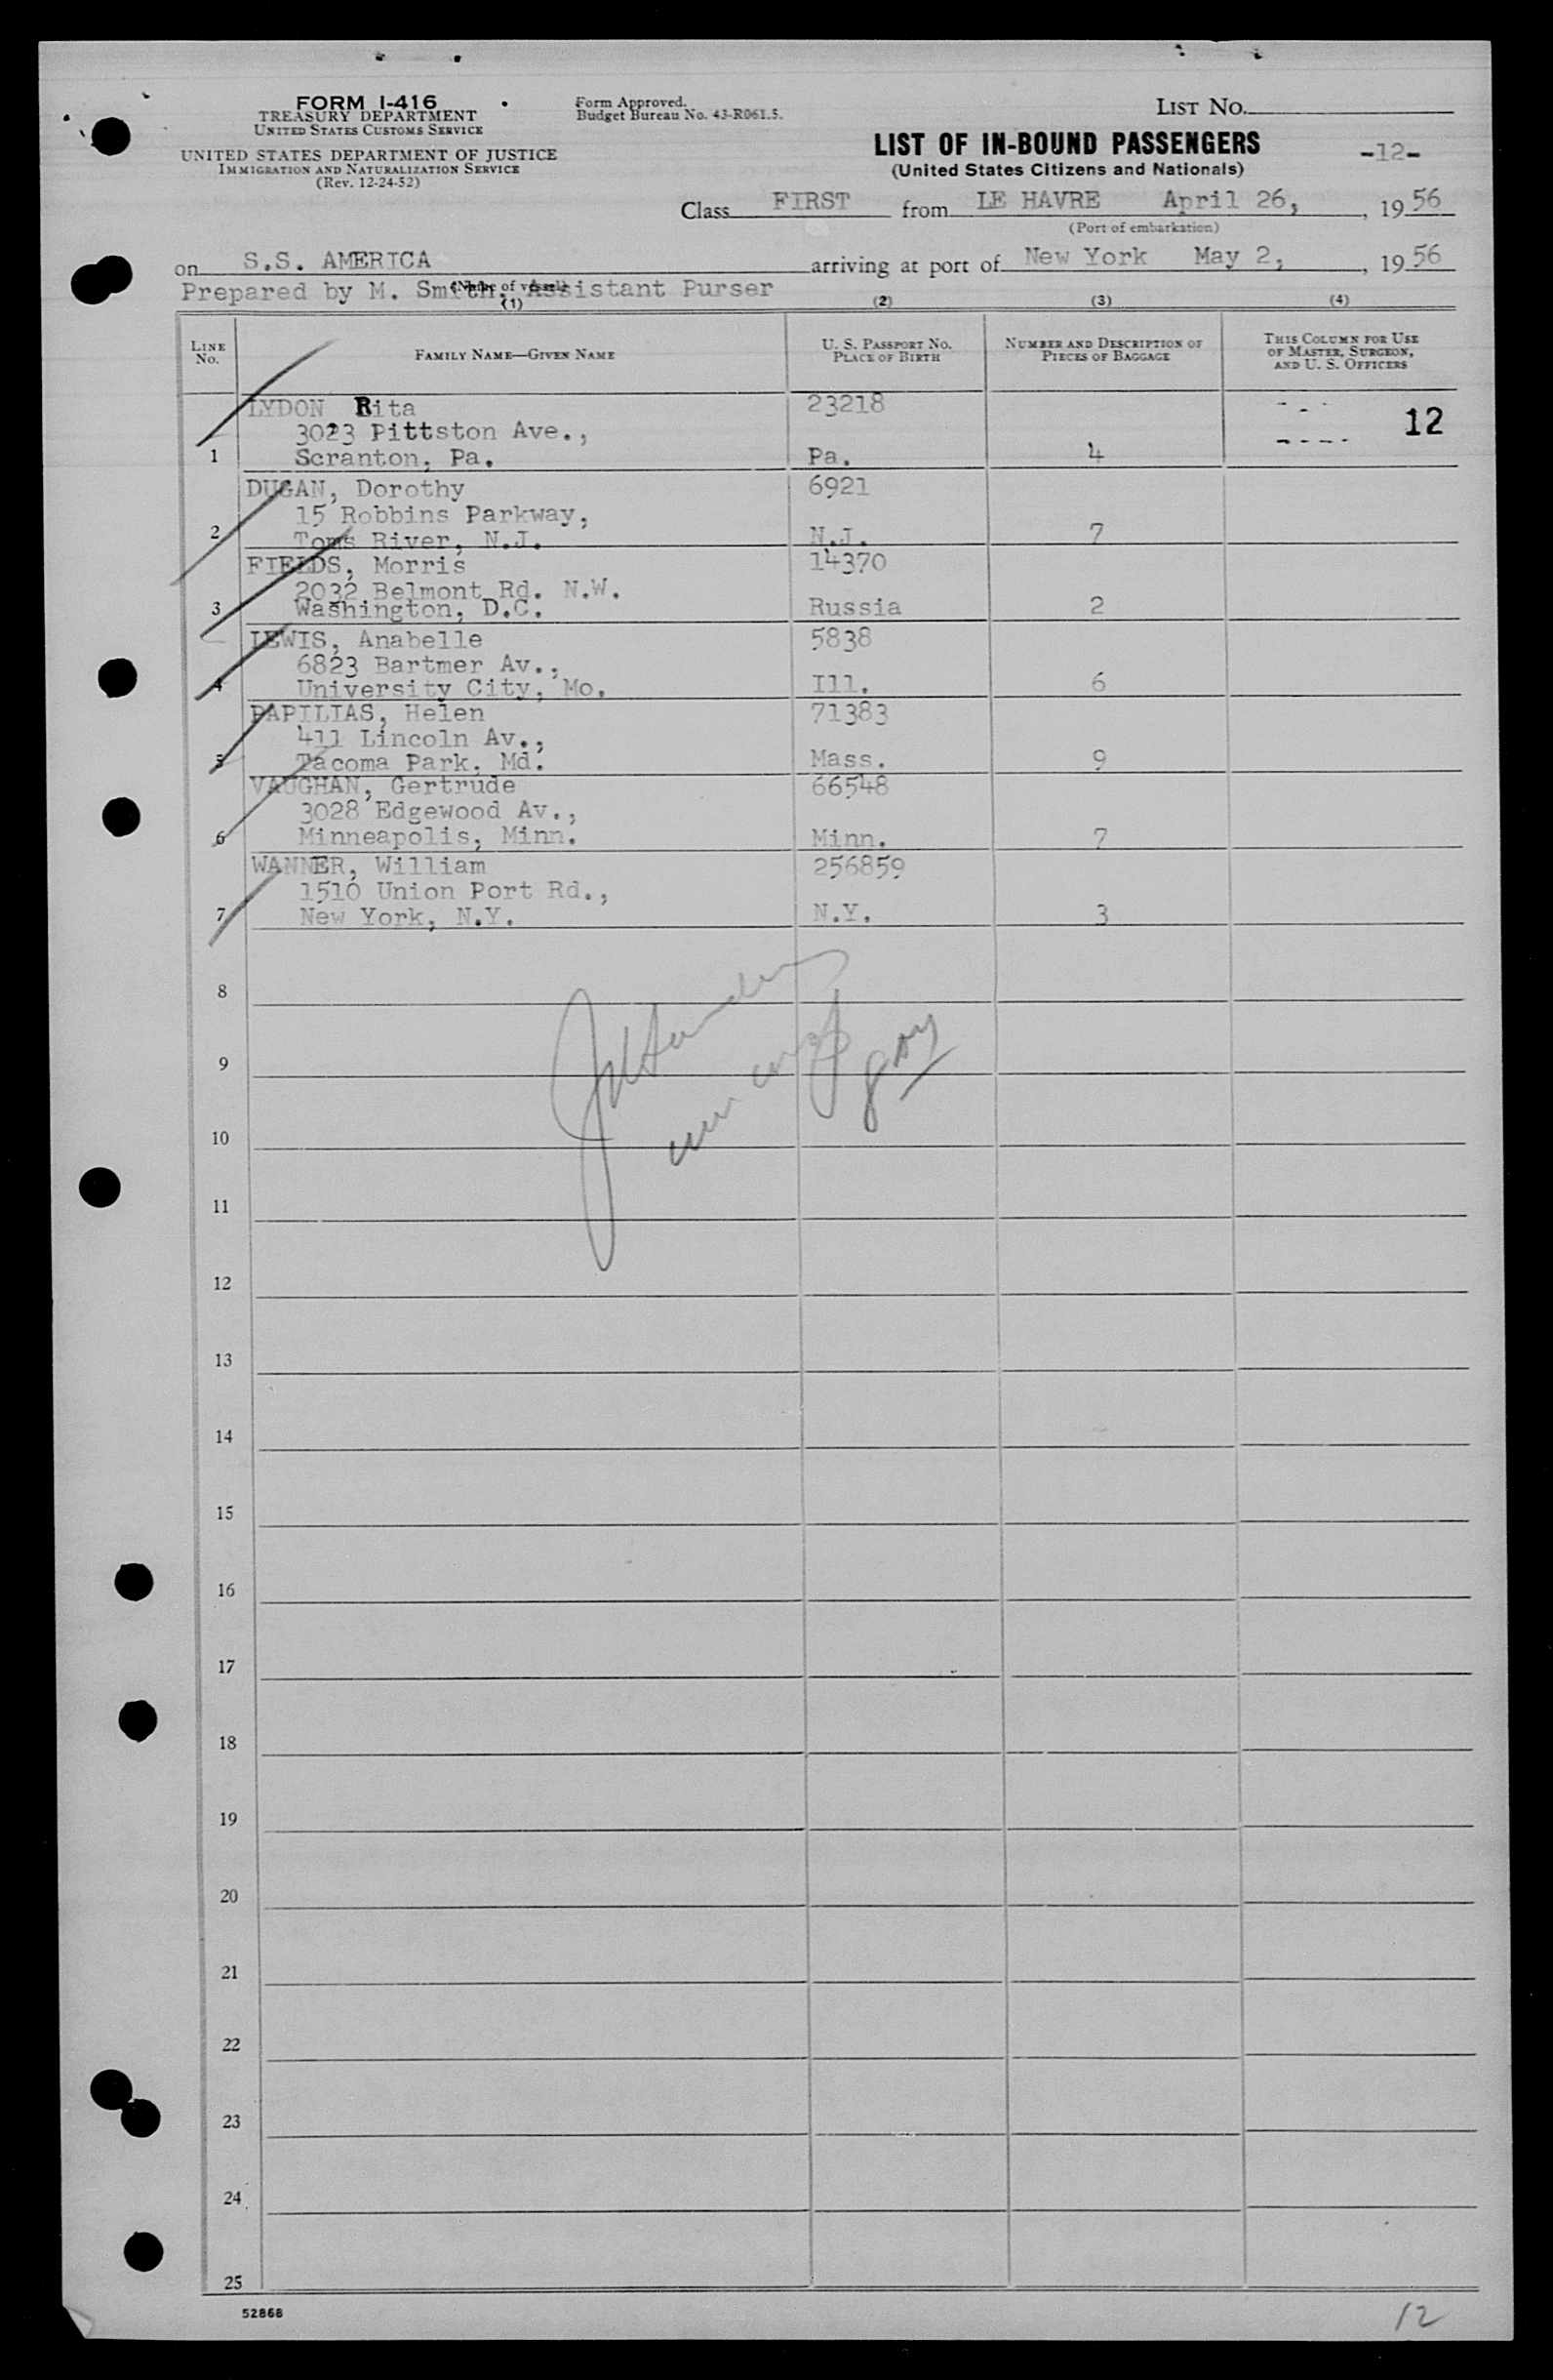 FORM I-416
TREASURY DEPARTMENT
UNITED STATES CUSTOMS SERVICE
UNITED STATES DEPARTMENT OF JUSTICE
IMMIGRATION AND NATURALIZATION SERVICE
(Rev. 12-24-52)
Form Approved.
Budget Bureau No. 43-R061.5.
LIST NO.
LIST OF IN-BOUND PASSENGERS
-12-
(United States Citizens and Nationals)
Class FIRST from LE HAVRE April 26, , 19 56
(Port of embarkation)
on S.S. AMERICA arriving at port of New York May 2, , 19 56
(Name of vessel)
Prepared by M. Smith, Assistant Purser
(1) (2) (3) (4)
LINE NO. FAMILY NAME—GIVEN NAME U. S. PASSPORT NO. PLACE OF BIRTH NUMBER AND DESCRIPTION OF PIECES OF BAGGAGE THIS COLUMN FOR USE OF MASTER, SURGEON, AND U. S. OFFICERS
LYDON Rita 23218
3023 Pittston Ave., 12
1 Scranton, Pa. Pa. 4
DUGAN, Dorothy 6921
15 Robbins Parkway,
2 Toms River, N.J. N.J. 7
FIELDS, Morris 14370
2032 Belmont Rd. N.W.
3 Washington, D.C. Russia 2
LEWIS, Anabelle 5838
6823 Bartmer Av.,
4 University City, Mo. Ill. 6
PAPILIAS, Helen 71383
411 Lincoln Av.,
5 Tacoma Park, Md. Mass. 9
VAUGHAN, Gertrude 66548
3028 Edgewood Av.,
6 Minneapolis, Minn. Minn. 7
WANNER, William 256859
1510 Union Port Rd.,
7 New York, N.Y. N.Y. 3
8
9
10
11
12
13
14
15
16
17
18
19
20
21
22
23
24
25
52868
12